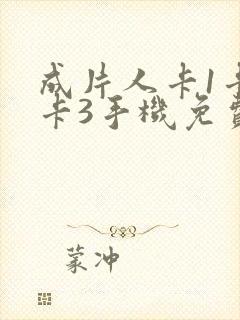 成片人卡1卡
卡3手機免費
蒙冲